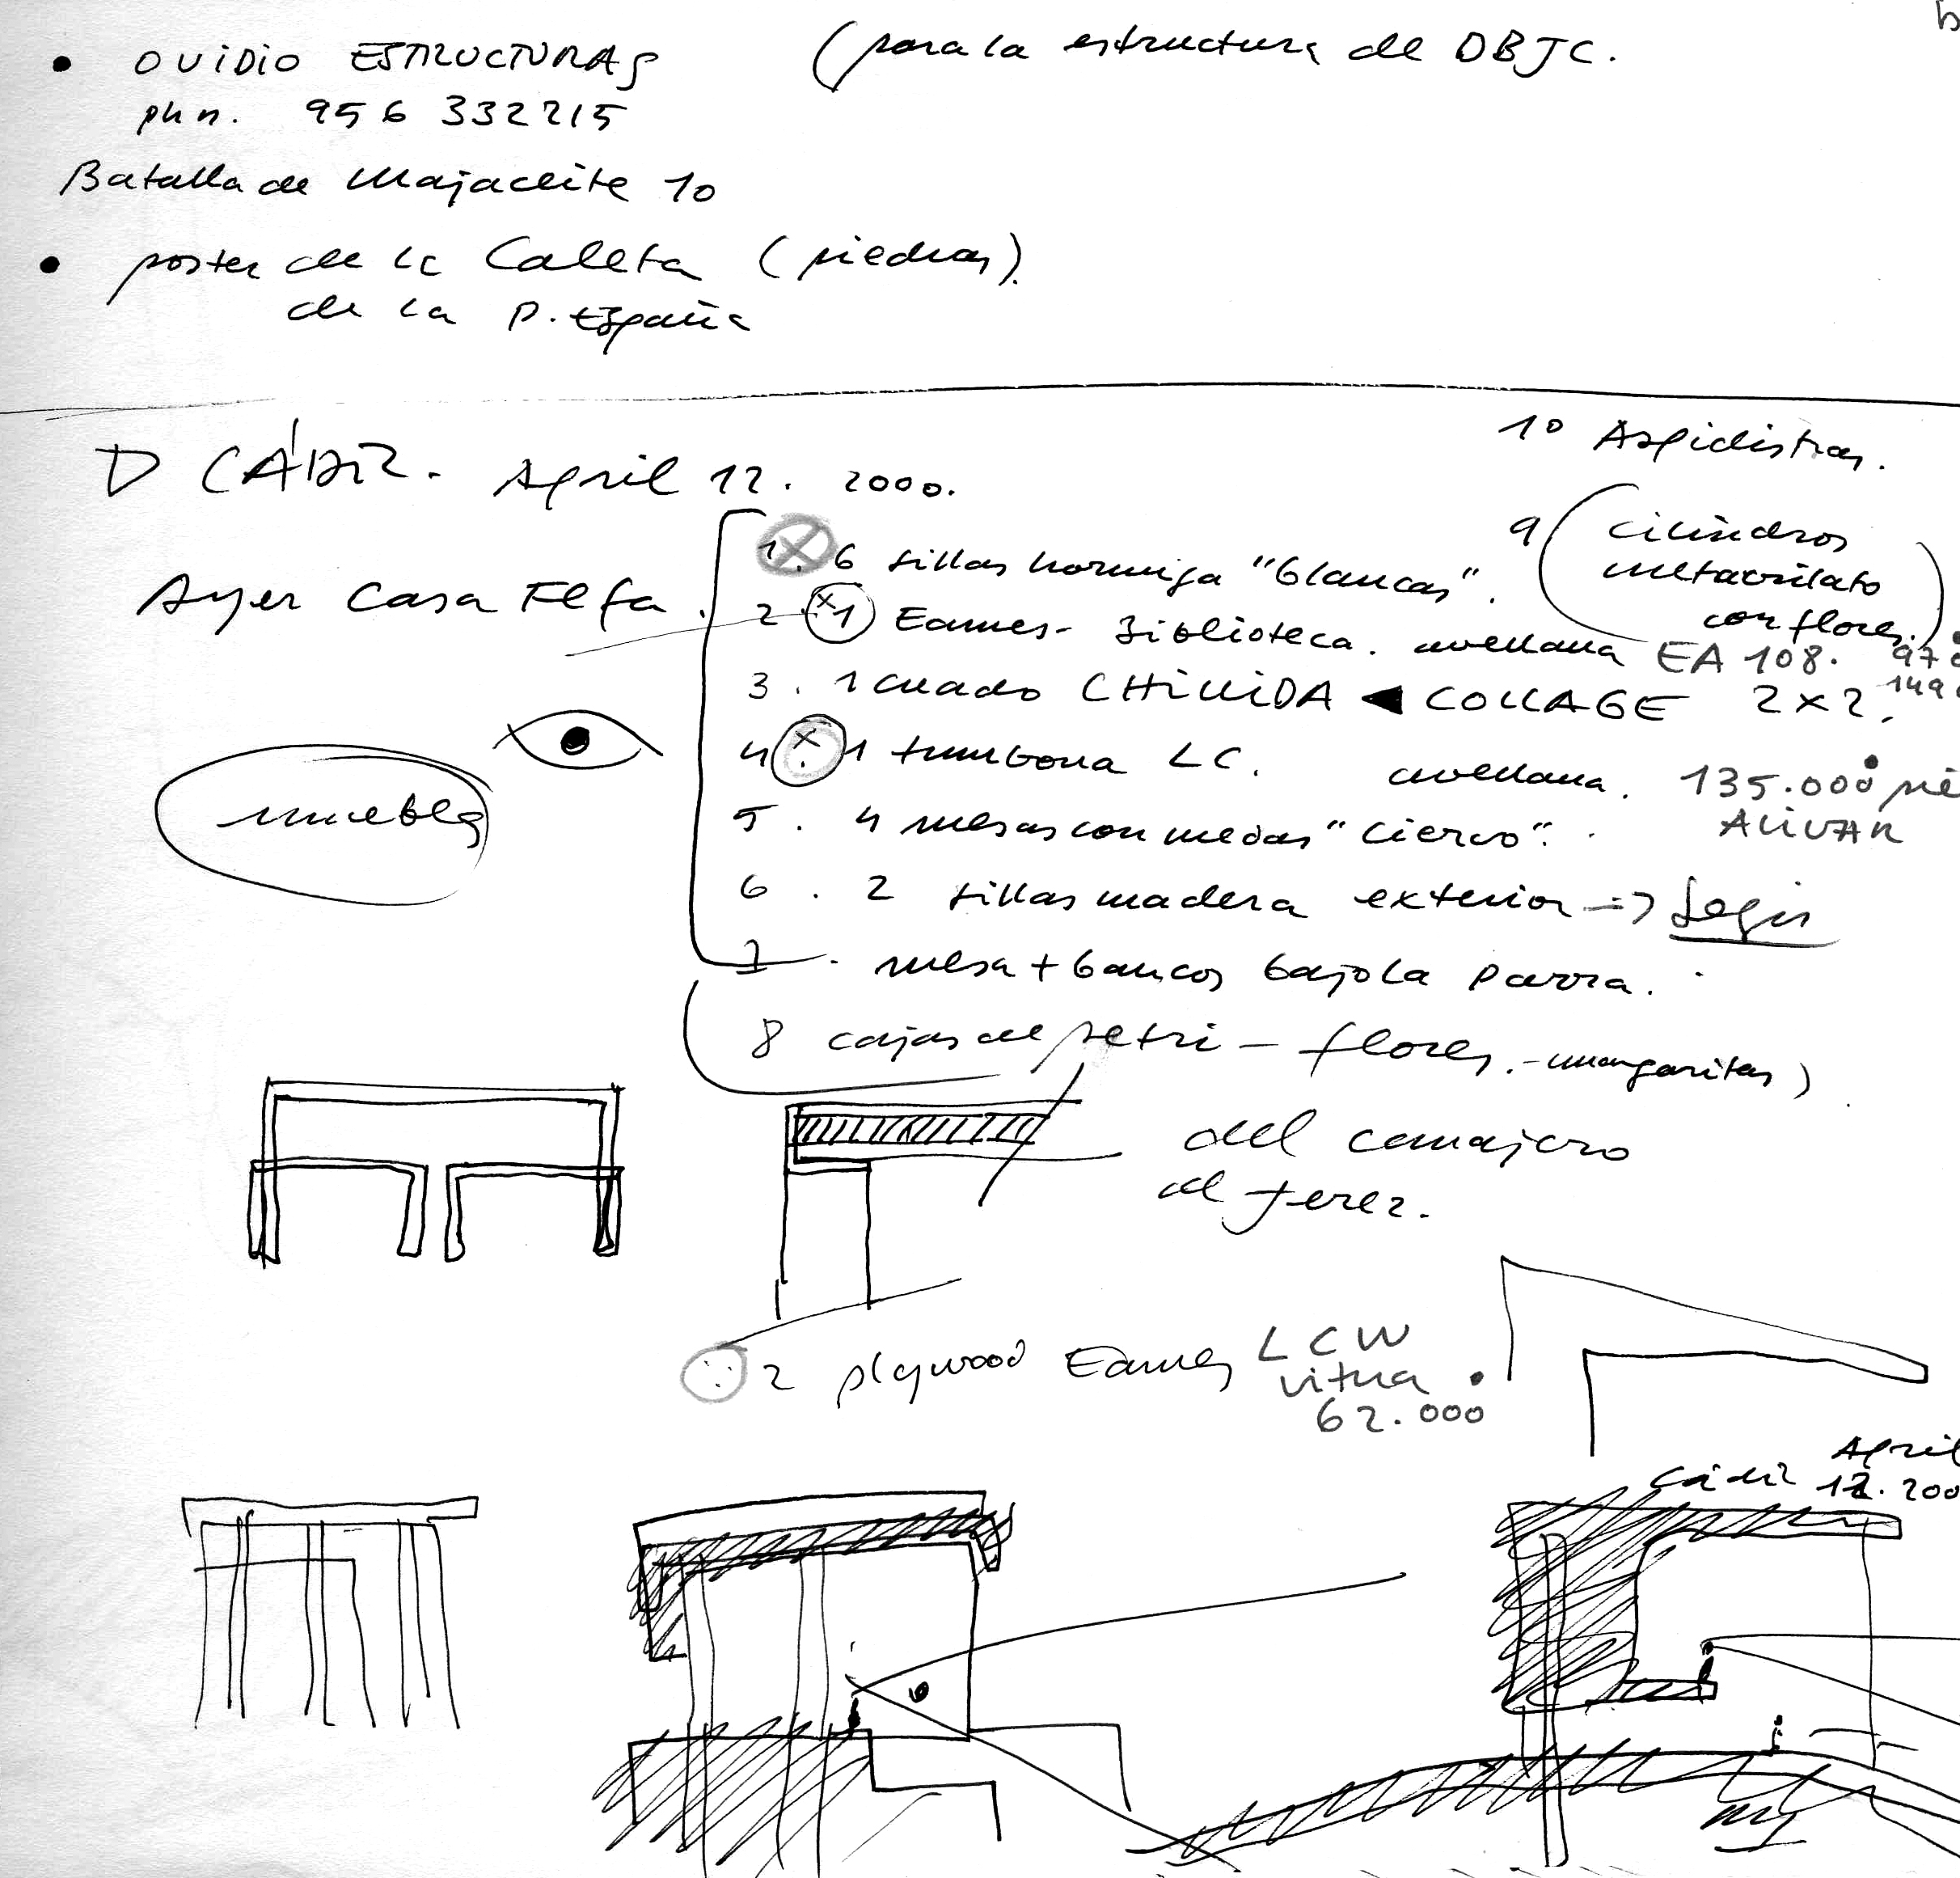 • OVIDIO ESTRUCTURAS (para la estructura de DBJC.
phn. 956 332215
Batalla de Majaceite 10
• poster de la Caleta (piedras).
de la P. España
D CÁDIZ. April 12. 2000.
10 Aspidistras.
9 (cilindros
metacrilato
con flores.)
Ayer Casa Fefa.
muebles
1. 6 sillas hormiga "blancas".
2. 1 Eames - Biblioteca. avellana EA 108.
3. 1 cuadro CHILLIDA ◄ COLLAGE 2x2.
4. 1 tumbona LC. avellana. 135.000
ALIVAR
5. 4 mesas con ruedas "Ciervo".
6. 2 sillas madera exterior =>
7. mesa + bancos bajo la parra.
8 cajas de petri - flores. - margaritas)
del
de Jerez.
2 plywood Eames LCW
vitra
62.000
Cádiz April
12. 200